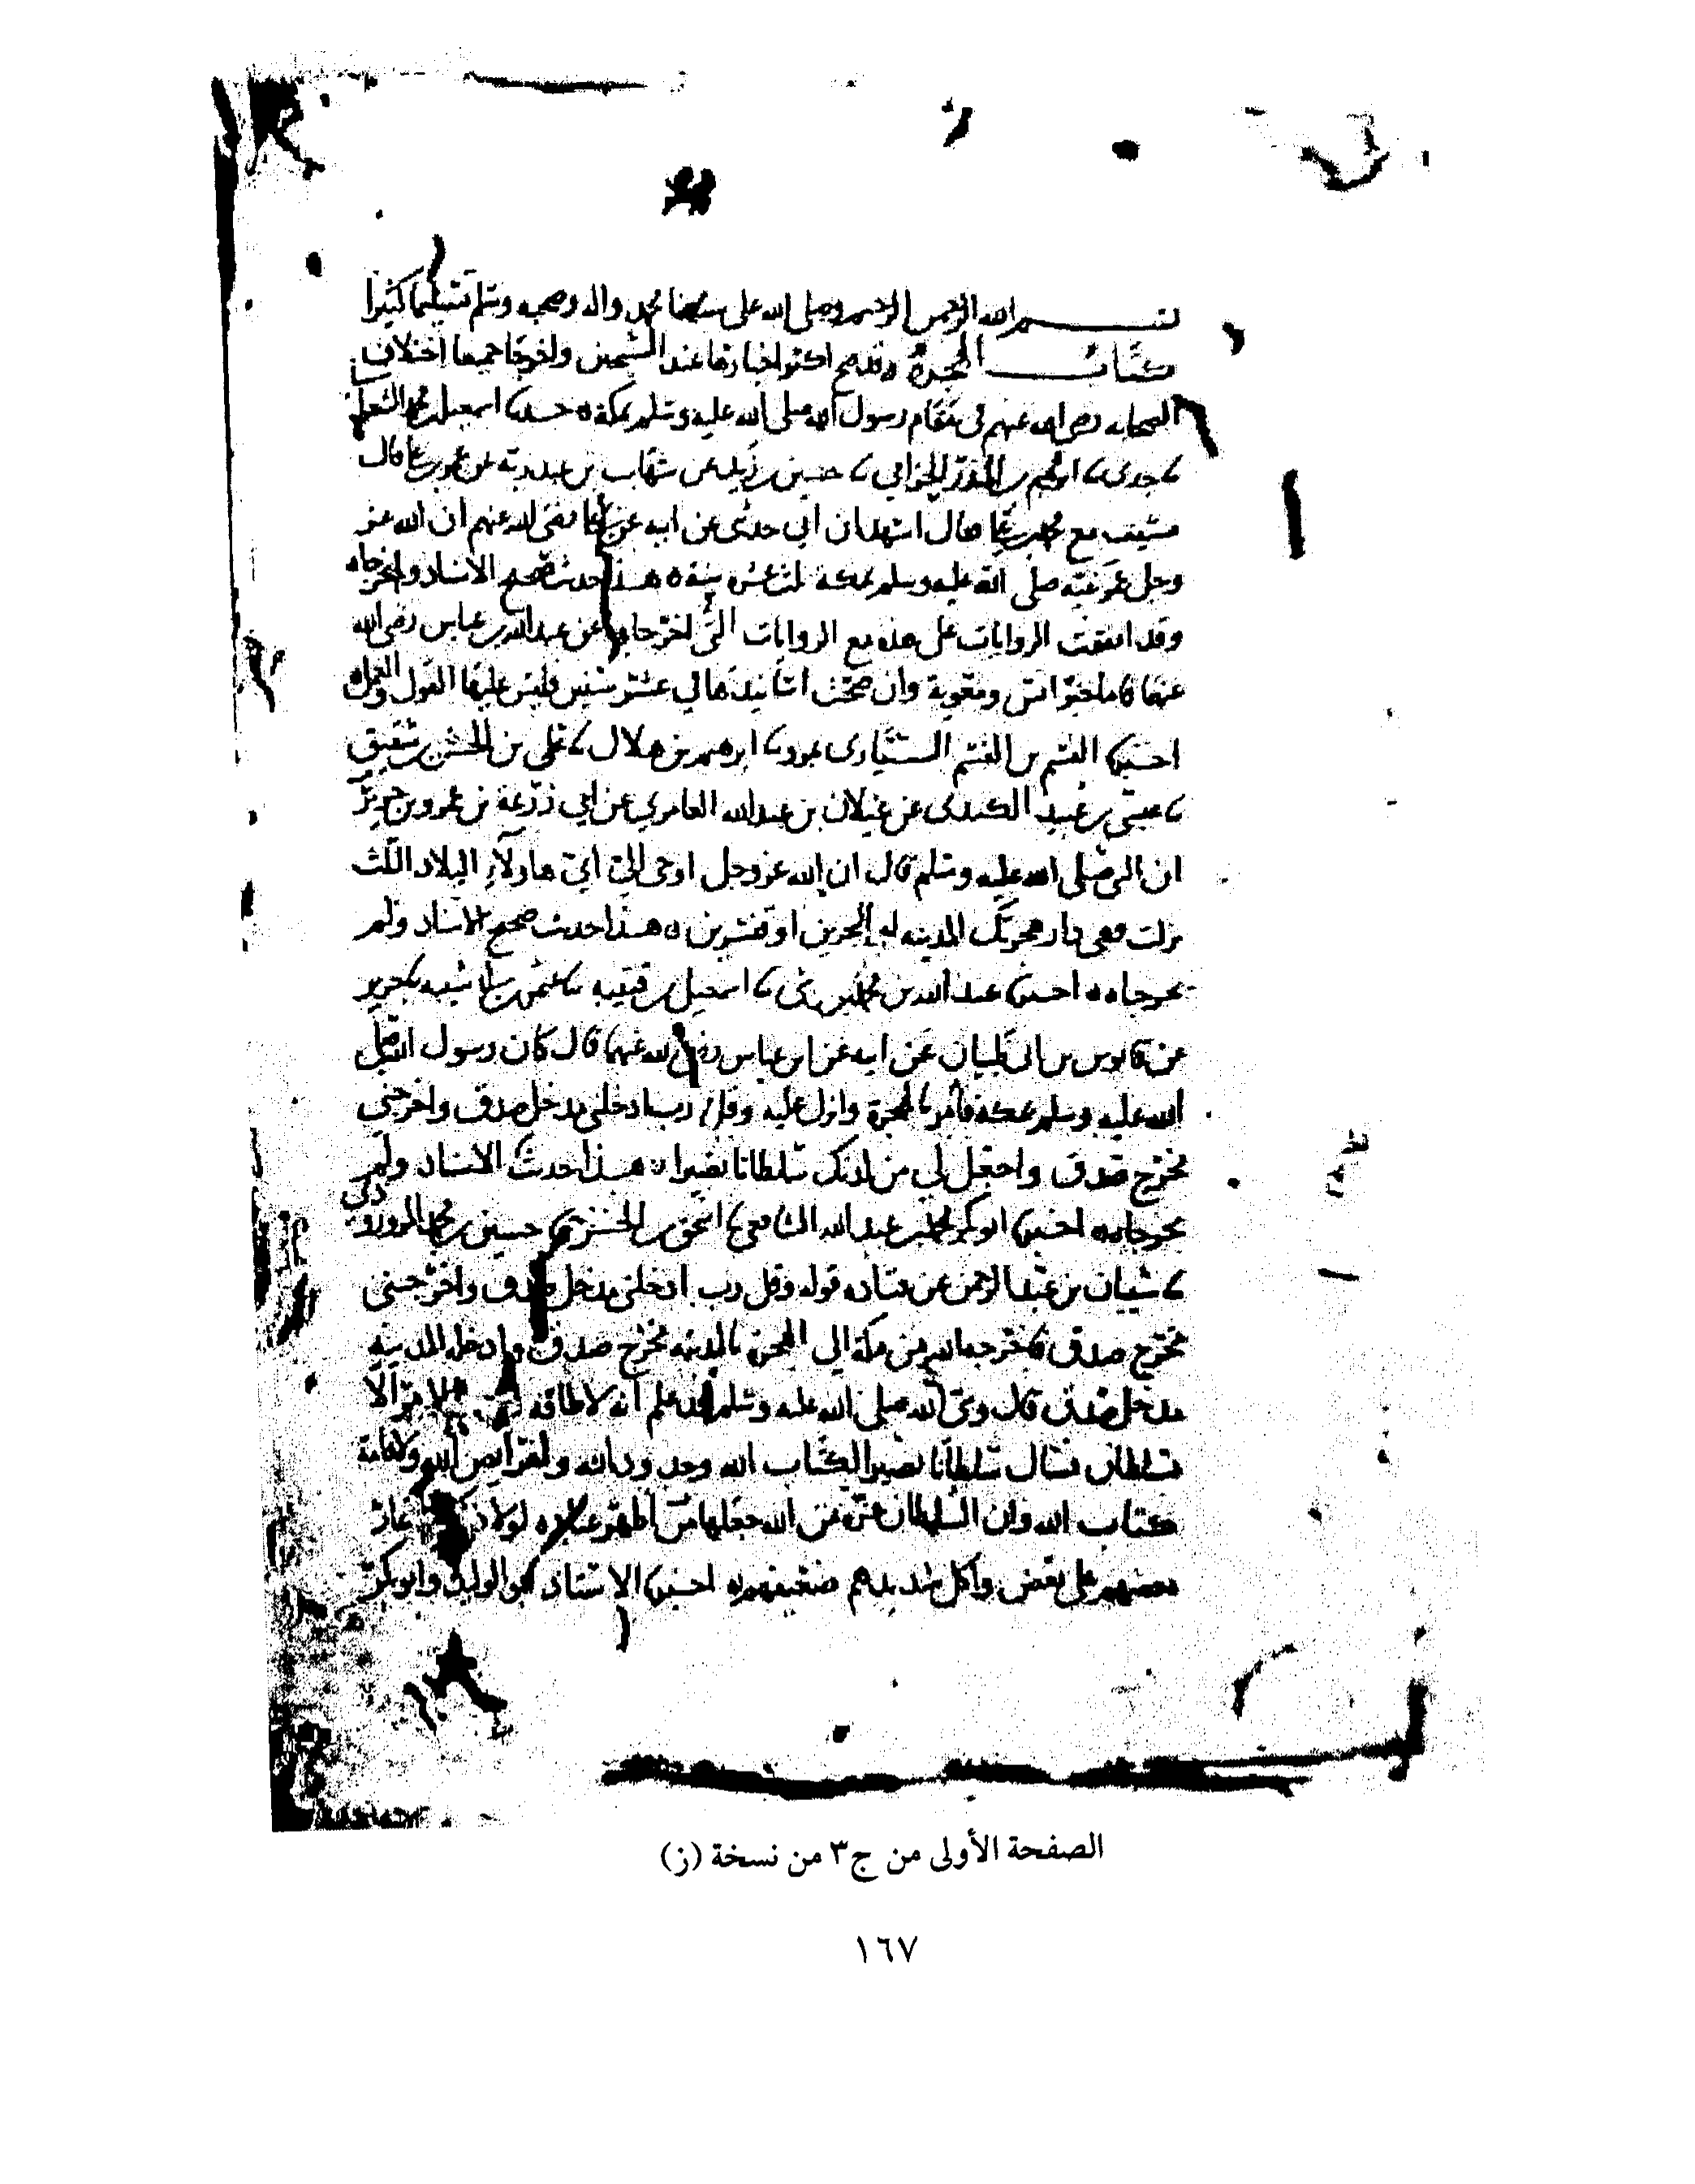 بسم الله الرحمن الرحيم وصلى الله على سيدنا محمد واله وصحبه وسلم تسليما كثيرا
كتاب الهجرة وقد صح اكثر اخبارها عند الشيخين واخرجا جميعا اختلاف
الصحابه رضي الله عنهم في مقام رسول الله صلى الله عليه وسلم بمكة ه حدثنا اسمعيل بن محمد الشعراني
جدي ابراهيم بن المنذر الحزامي حسين بن زيد عن شهاب بن عبد ربه عن عمر بن علي قال
مشيت مع محمد بن علي فقال اشهد ان ابي حدثني عن ابيه عن علي رضي الله عنهم ان الله عز
وجل عمر نبيه صلى الله عليه وسلم بمكة ثلث عشر سنة ه هذا حديث صحيح الاسناد ولم يخرجاه
وقد اتفقت الروايات على هذه مع الروايات التي اخرجاه عن عبد الله بن عباس رضي الله
عنهما فاما خبر انس ومعوية وان صحت اسانيدها في عشر سنين فليس عليها القول والعمل
اخبرنا القسم بن القسم السياري بمرو ابرهيم بن هلال علي بن الحسن بن شقيق
عيسى بن عبيد الكندي عن غيلان بن عبد الله العامري عن ابي زرعة بن عمرو بن جرير
ان النبي صلى الله عليه وسلم قال ان الله عز وجل اوحى الي اي هاولاء البلاد الثلث
نزلت فهي دار هجرتك المدينه او البحرين او قنسرين ه هذا حديث صحيح الاسناد ولم
يخرجاه ه اخبرنا عبد الله بن محمد بن موسى اسمعيل بن قتيبه عثمن بن ابي شيبه جرير
عن قابوس بن ابي ظبيان عن ابيه عن ابن عباس رضي الله عنهما قال كان رسول الله صلى
الله عليه وسلم بمكة فأمر بالهجرة وانزل عليه وقل رب ادخلني مدخل صدق واخرجني
مخرج صدق واجعل لي من لدنك سلطانا نصيرا ه هذا حديث الاسناد ولم
يخرجاه ه اخبرنا ابو بكر محمد بن عبد الله الشافعي اسحق بن الحسن حسين بن محمد المروروذي
شيبان بن عبد الرحمن عن قتاده قوله وقل رب ادخلني مدخل صدق واخرجني
مخرج صدق فاخرجه الله من مكة الى الهجرة بالمدينه مخرج صدق وادخله المدينه
مدخل صدق قال ونبي الله صلى الله عليه وسلم قد علم انه لا طاقه له الامر الا
بسلطان فسال سلطانا نصيرا لكتاب الله وحدوده ولفرايض الله ولاقامة
كتاب الله وان السلطان عزة من الله جعلها من اظهر عباده لولا ذلك لاغار
بعضهم على بعض واكل شديدهم ضعيفهم ه اخبرنا الاستاذ ابو الوليد وابو بكر
الصفحة الأولى من ج٣ من نسخة (ز)
١٦٧